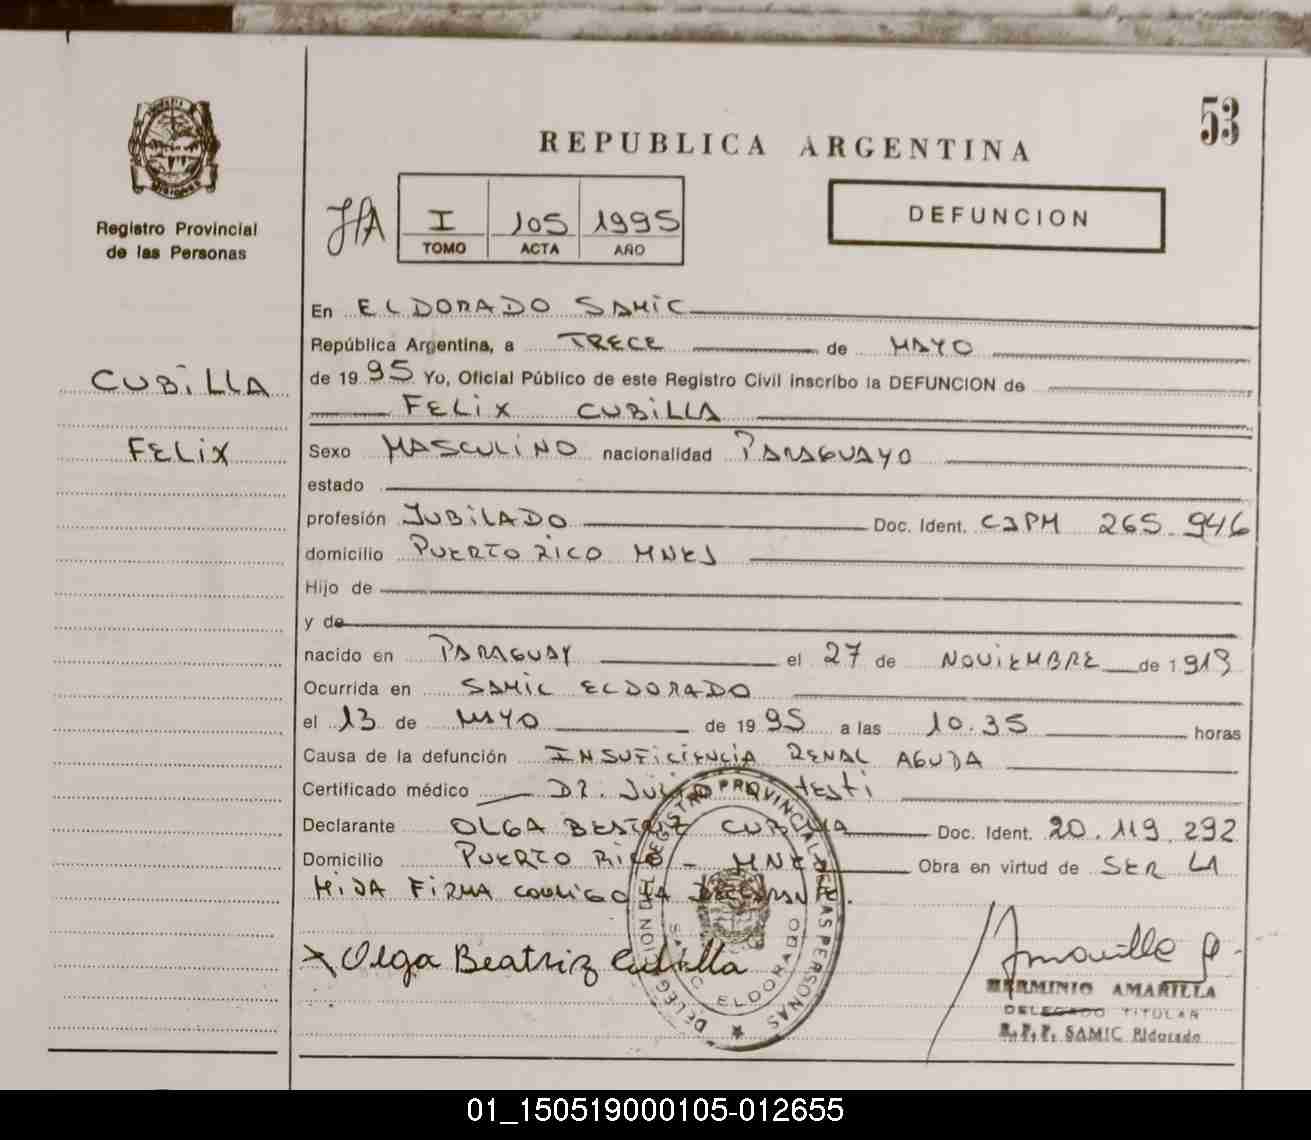 53
REPUBLICA ARGENTINA
Registro Provincial
de las Personas
I 105 1995
TOMO ACTA AÑO
DEFUNCION
CUBILLA
FELIX
En ELDORADO SAMIC
República Argentina, a TRECE de MAYO
de 1995 Yo, Oficial Público de este Registro Civil inscribo la DEFUNCION de
FELIX CUBILLA
Sexo MASCULINO nacionalidad PARAGUAYO
estado
profesión JUBILADO Doc. Ident. CIPM 265.946
domicilio PUERTO RICO MNES
Hijo de
y de
nacido en PARAGUAY el 27 de NOVIEMBRE de 1919
Ocurrida en SAMIC ELDORADO
el 13 de MAYO de 1995 a las 10.35 horas
Causa de la defunción INSUFICIENCIA RENAL AGUDA
Certificado médico DR. JULIO testi
Declarante OLGA BEATRIZ CUBILLA Doc. Ident. 20.119.292
Domicilio PUERTO RICO - MNES Obra en virtud de SER LA
HIJA FIRMA CONMIGO LA DECLARANTE.
x Olga Beatriz Cubilla
DELEGACION DEL REGISTRO PROVINCIAL DE LAS PERSONAS
SAMIC ELDORADO
HERMINIO AMARILLA
DELEGADO TITULAR
R.P.P. SAMIC Eldorado
01_150519000105-012655